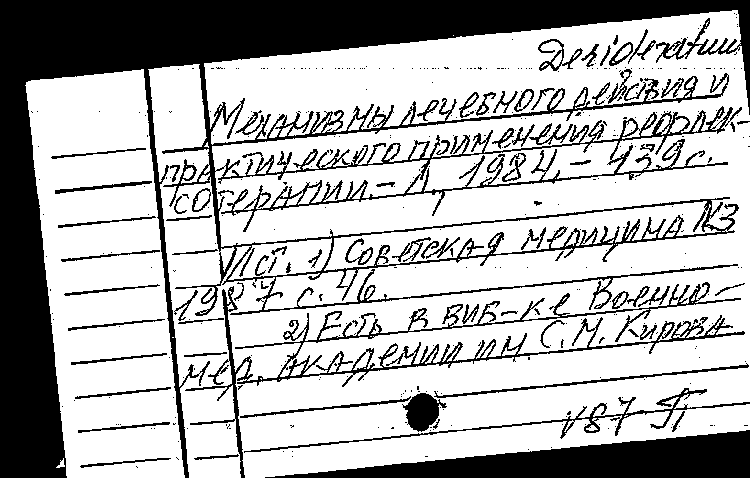 Desideratum
Механизмы лечебного действия и
практического применения рефлек-
сотерапии. - Л, 1984. - 439 с.
Ист. 1) Советская медицина №3
1987 с. 46.
2) Есть в биб-ке Военно-
мед. академии им. С.М. Кирова
V87